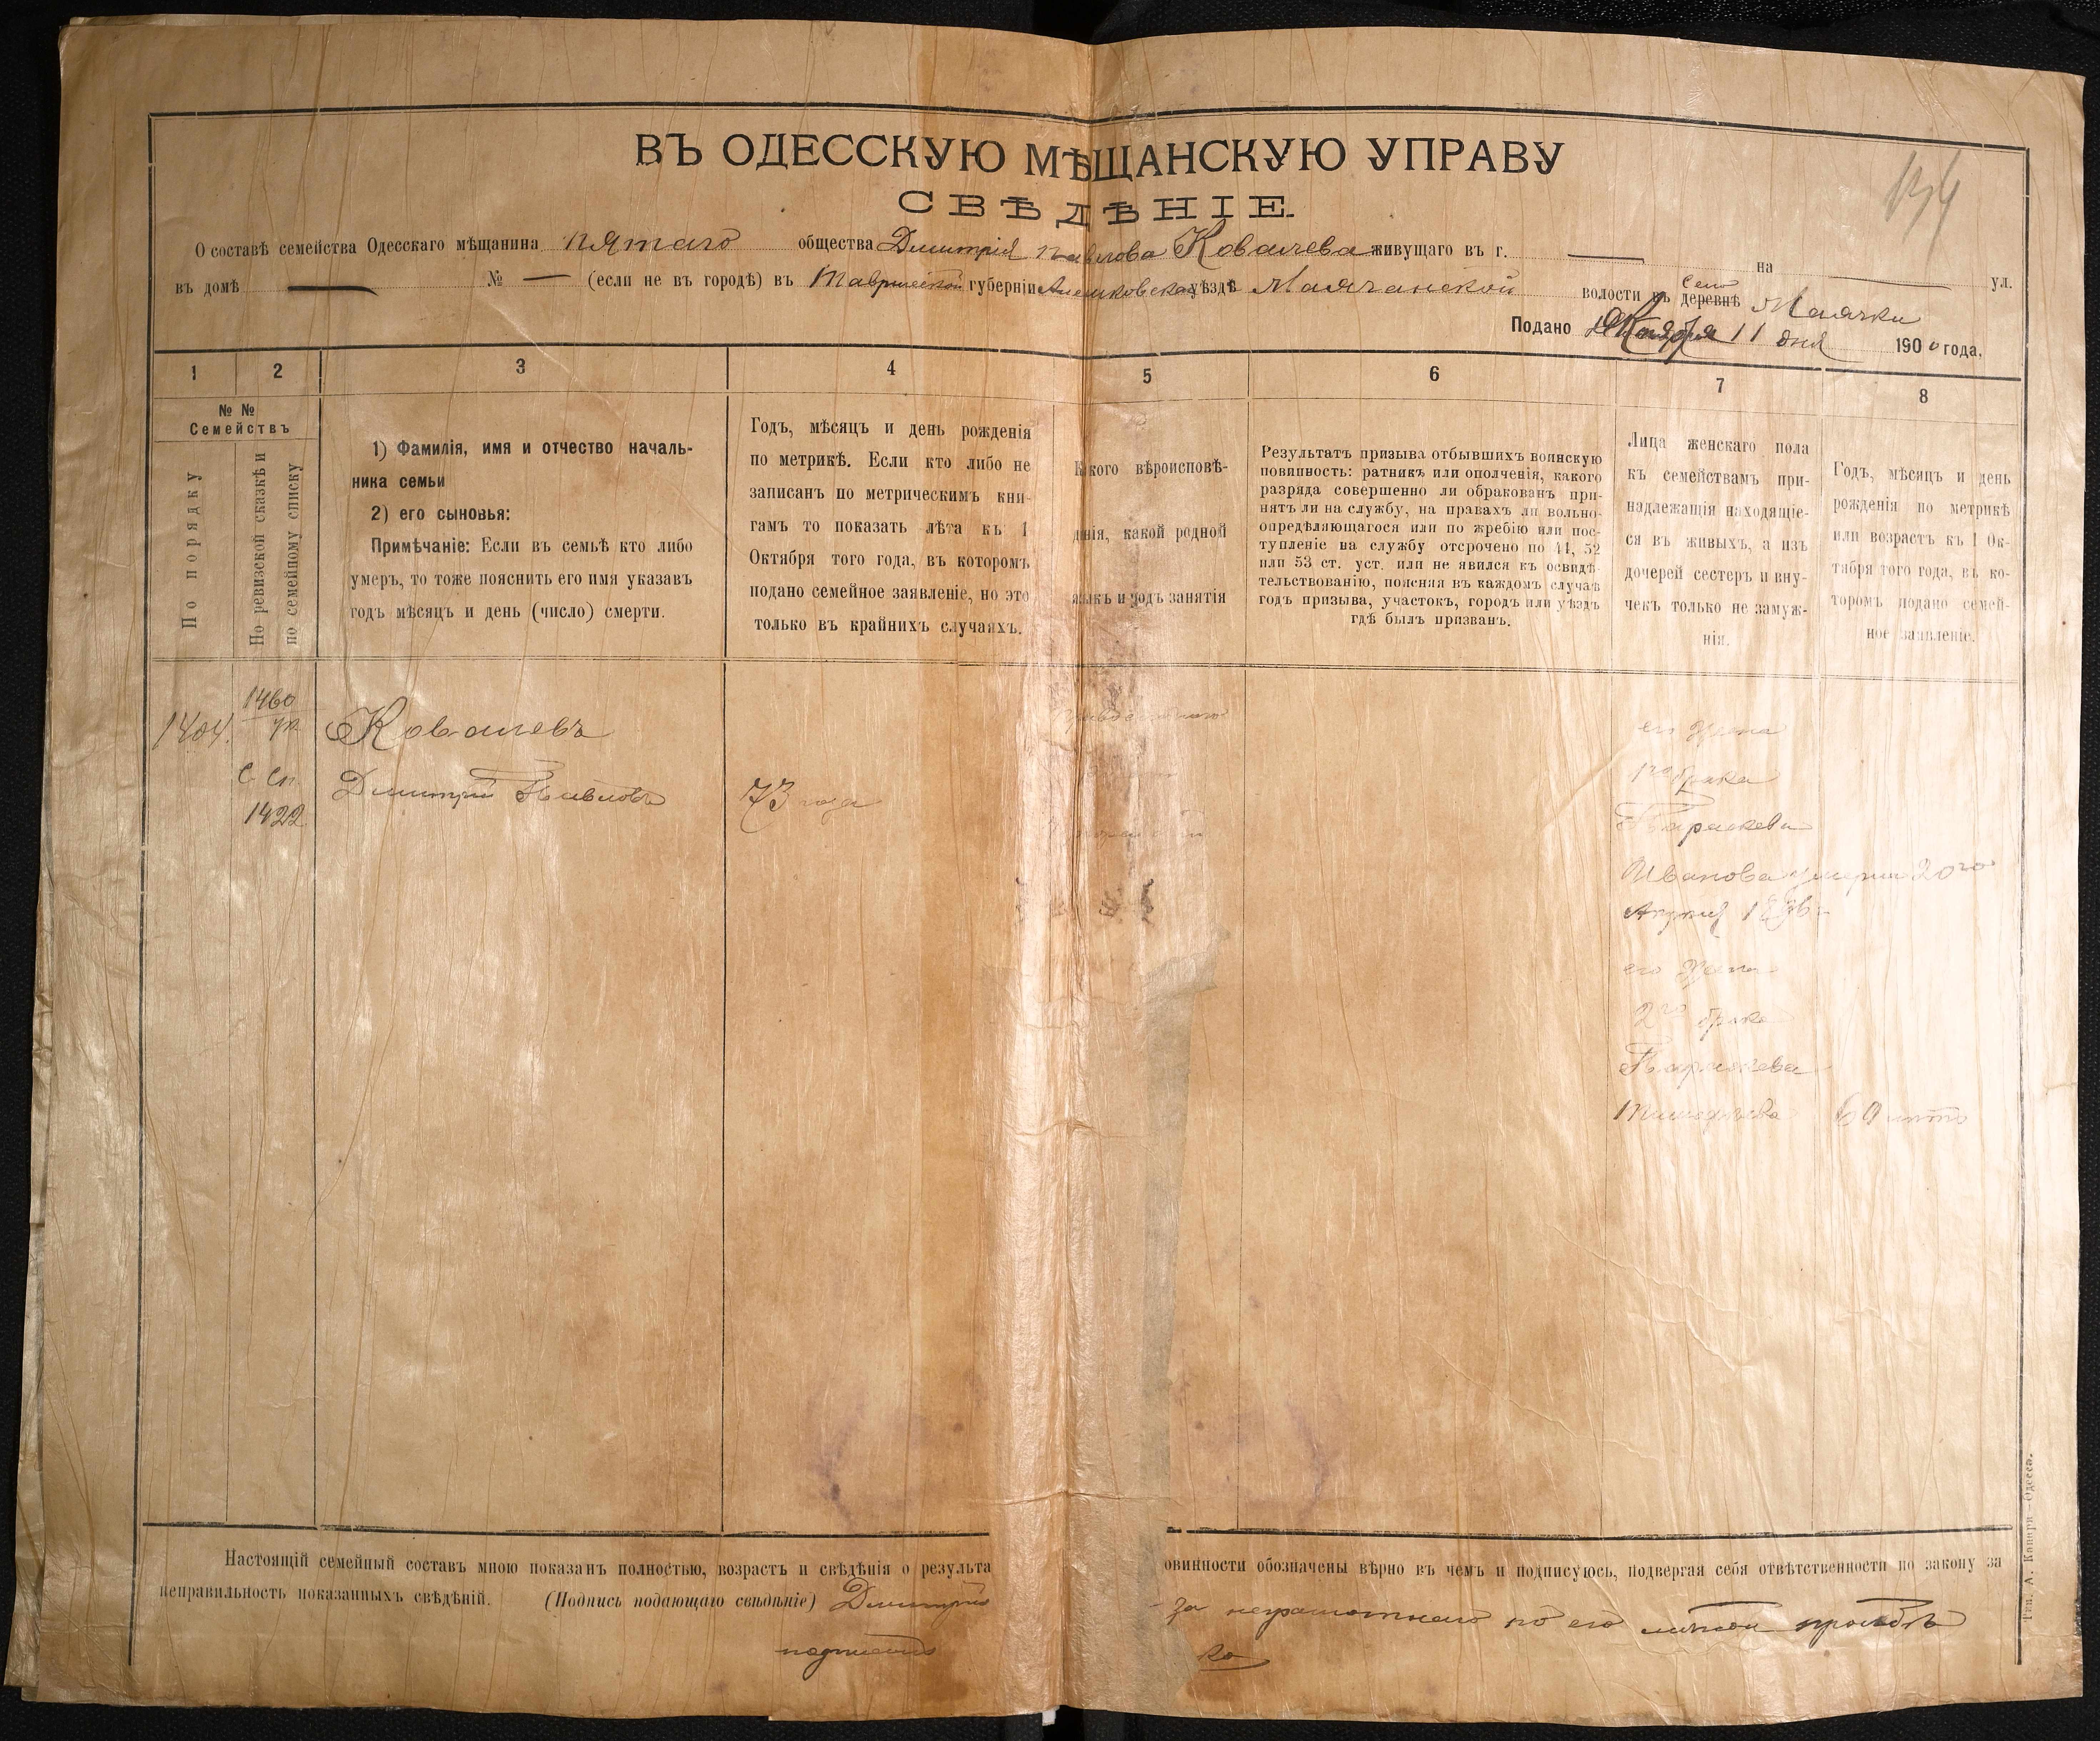 134
ВЪ ОДЕССКУЮ МѢЩАНСКУЮ УПРАВУ
СВѢДѢНІЕ.
О составѣ семейства Одесскаго мѣщанина пятаго общества Дмитрія Павлова Ковалева живущаго въ г. — на — ул.
въ домѣ — № — (если не въ городѣ) въ Таврической губерніи Алешковскомъ уѣздѣ Маячанской волости въ деревнѣ Село Маячки
Подано Ноября 11 дня 1900 года.
1 2 3 4 5 6 7 8
№ №
Семействъ
По порядку
По ревизской сказкѣ и
по семейному списку
1) Фамилія, имя и отчество началь-
ника семьи
2) его сыновья:
Примѣчаніе: Если въ семьѣ кто либо
умеръ, то тоже пояснить его имя указавъ
годъ мѣсяцъ и день (число) смерти.
Годъ, мѣсяцъ и день рожденія
по метрикѣ. Если кто либо не
записанъ по метрическимъ кни-
гамъ то показать лѣта къ 1
Октября того года, въ которомъ
подано семейное заявленіе, но это
только въ крайнихъ случаяхъ.
Какого вѣроисповѣ-
данія, какой родной
языкъ и родъ занятія
Результатъ призыва отбывшихъ воинскую
повинность: ратникъ или ополченія, какого
разряда совершенно ли обракованъ при-
нятъ ли на службу, на правахъ ли вольно-
опредѣляющагося или по жребію или пос-
тупленіе на службу отсрочено по 41, 52
или 53 ст. уст. или не явился къ освидѣ-
тельствованію, поясняя въ каждомъ случаѣ
годъ призыва, участокъ, городъ или уѣздъ
гдѣ былъ призванъ.
Лица женскаго пола
къ семействамъ при-
надлежащія находящіе-
ся въ живыхъ, а изъ
дочерей сестеръ и вну-
чекъ только не замуж-
нія.
Годъ, мѣсяцъ и день
рожденія по метрикѣ
или возрастъ къ 1 Ок-
тября того года, въ ко-
торомъ подано семей-
ное заявленіе.
1404.
1460
С Сп.
1422
Ковалевъ
Дмитрій Павловъ
73 года
его жена
1го брака
Параскева
Иванова умерла 20го
его жена
2го брака
Параскева
Тимофѣева 60 лѣтъ
Настоящій семейный составъ мною показанъ полностью, возрастъ и свѣдѣнія о результа
овинности обозначены вѣрно въ чемъ и подписуюсь, подвергая себя отвѣтственности по закону за
неправильность показанныхъ свѣдѣній. (Подпись подающаго свѣдѣніе) Дмитрій
за неграмотнаго по его личной просьбѣ
Тип. А. Канторя Одесса.